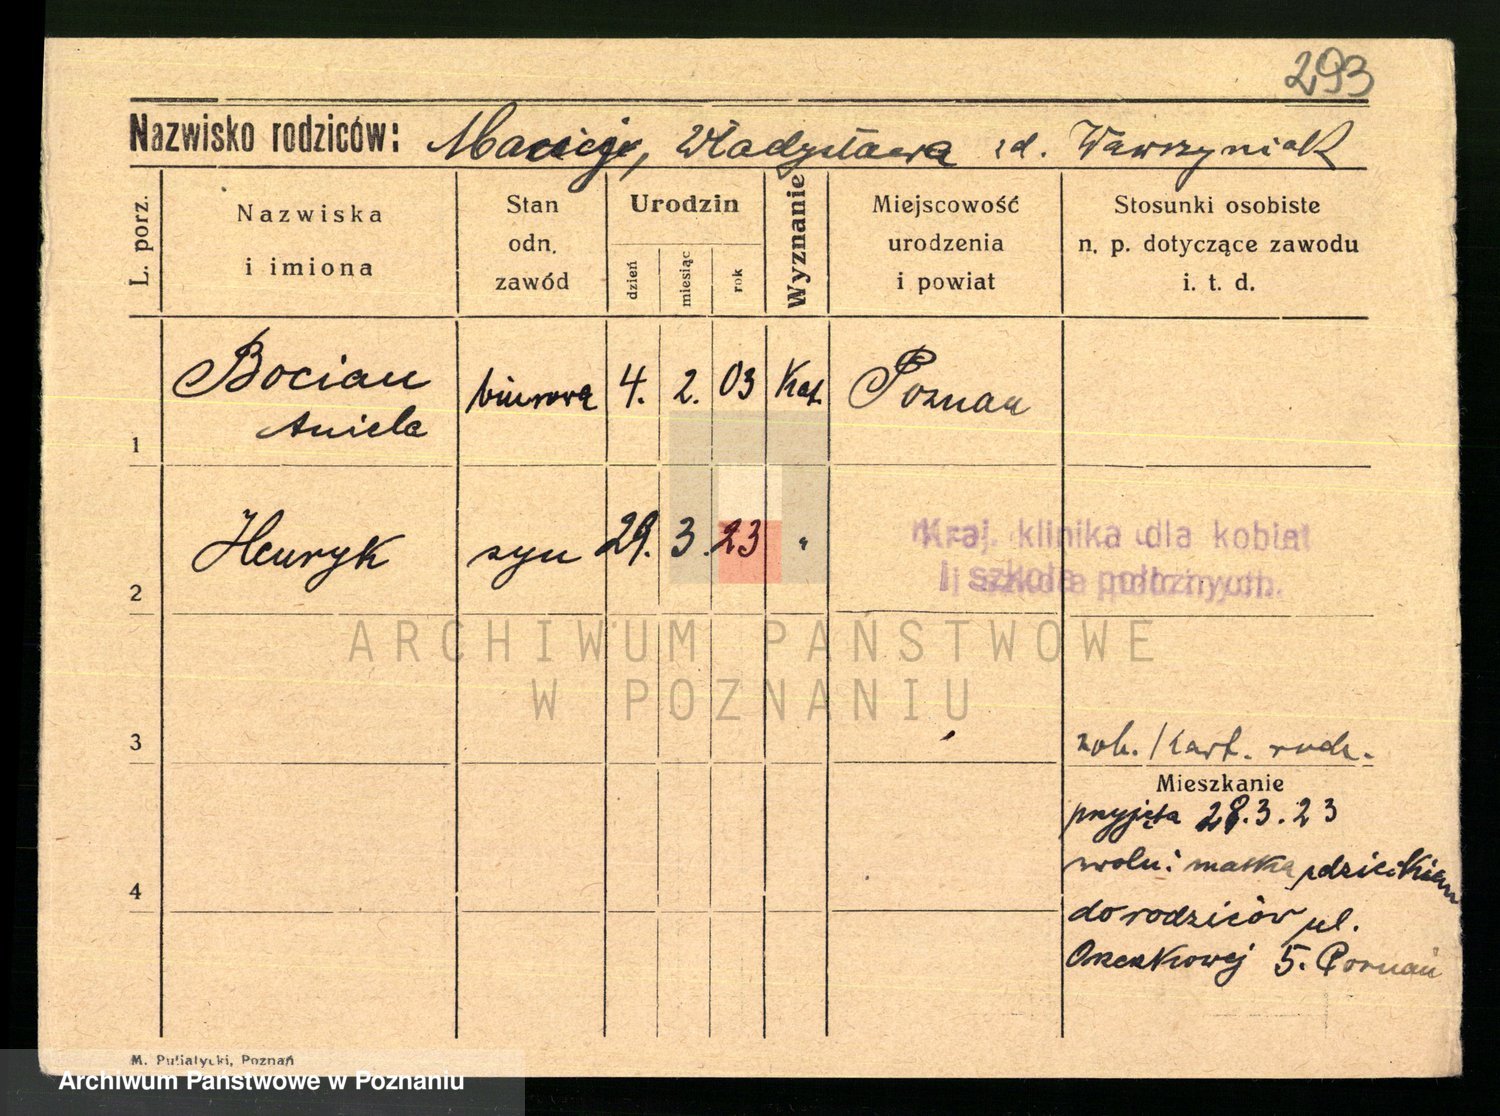 293
Nazwisko rodziców: Maciej, Władysława zd. Wawrzyniak
L. porz.
Nazwiska
i imiona
Stan
odn.
zawód
Urodzin
dzień
miesiąc
rok
Wyznanie
Miejscowość
urodzenia
i powiat
Stosunki osobiste
n. p. dotyczące zawodu
i. t. d.
1 Bocian biurowa 4. 2. 03 Kat. Poznań
Aniela
2 Henryk syn 29. 3. 23 "
Kraj. klinika dla kobiet
i szkoła położnych.
ARCHIWUM PAŃSTWOWE
W POZNANIU
3
zob. kart. rodz.
Mieszkanie
przyjęta 28.3.23
woln: matka z dzieckiem
4
do rodziców ul.
Orzeszkowej 5. Poznań
M. Putiatycki, Poznań
Archiwum Państwowe w Poznaniu